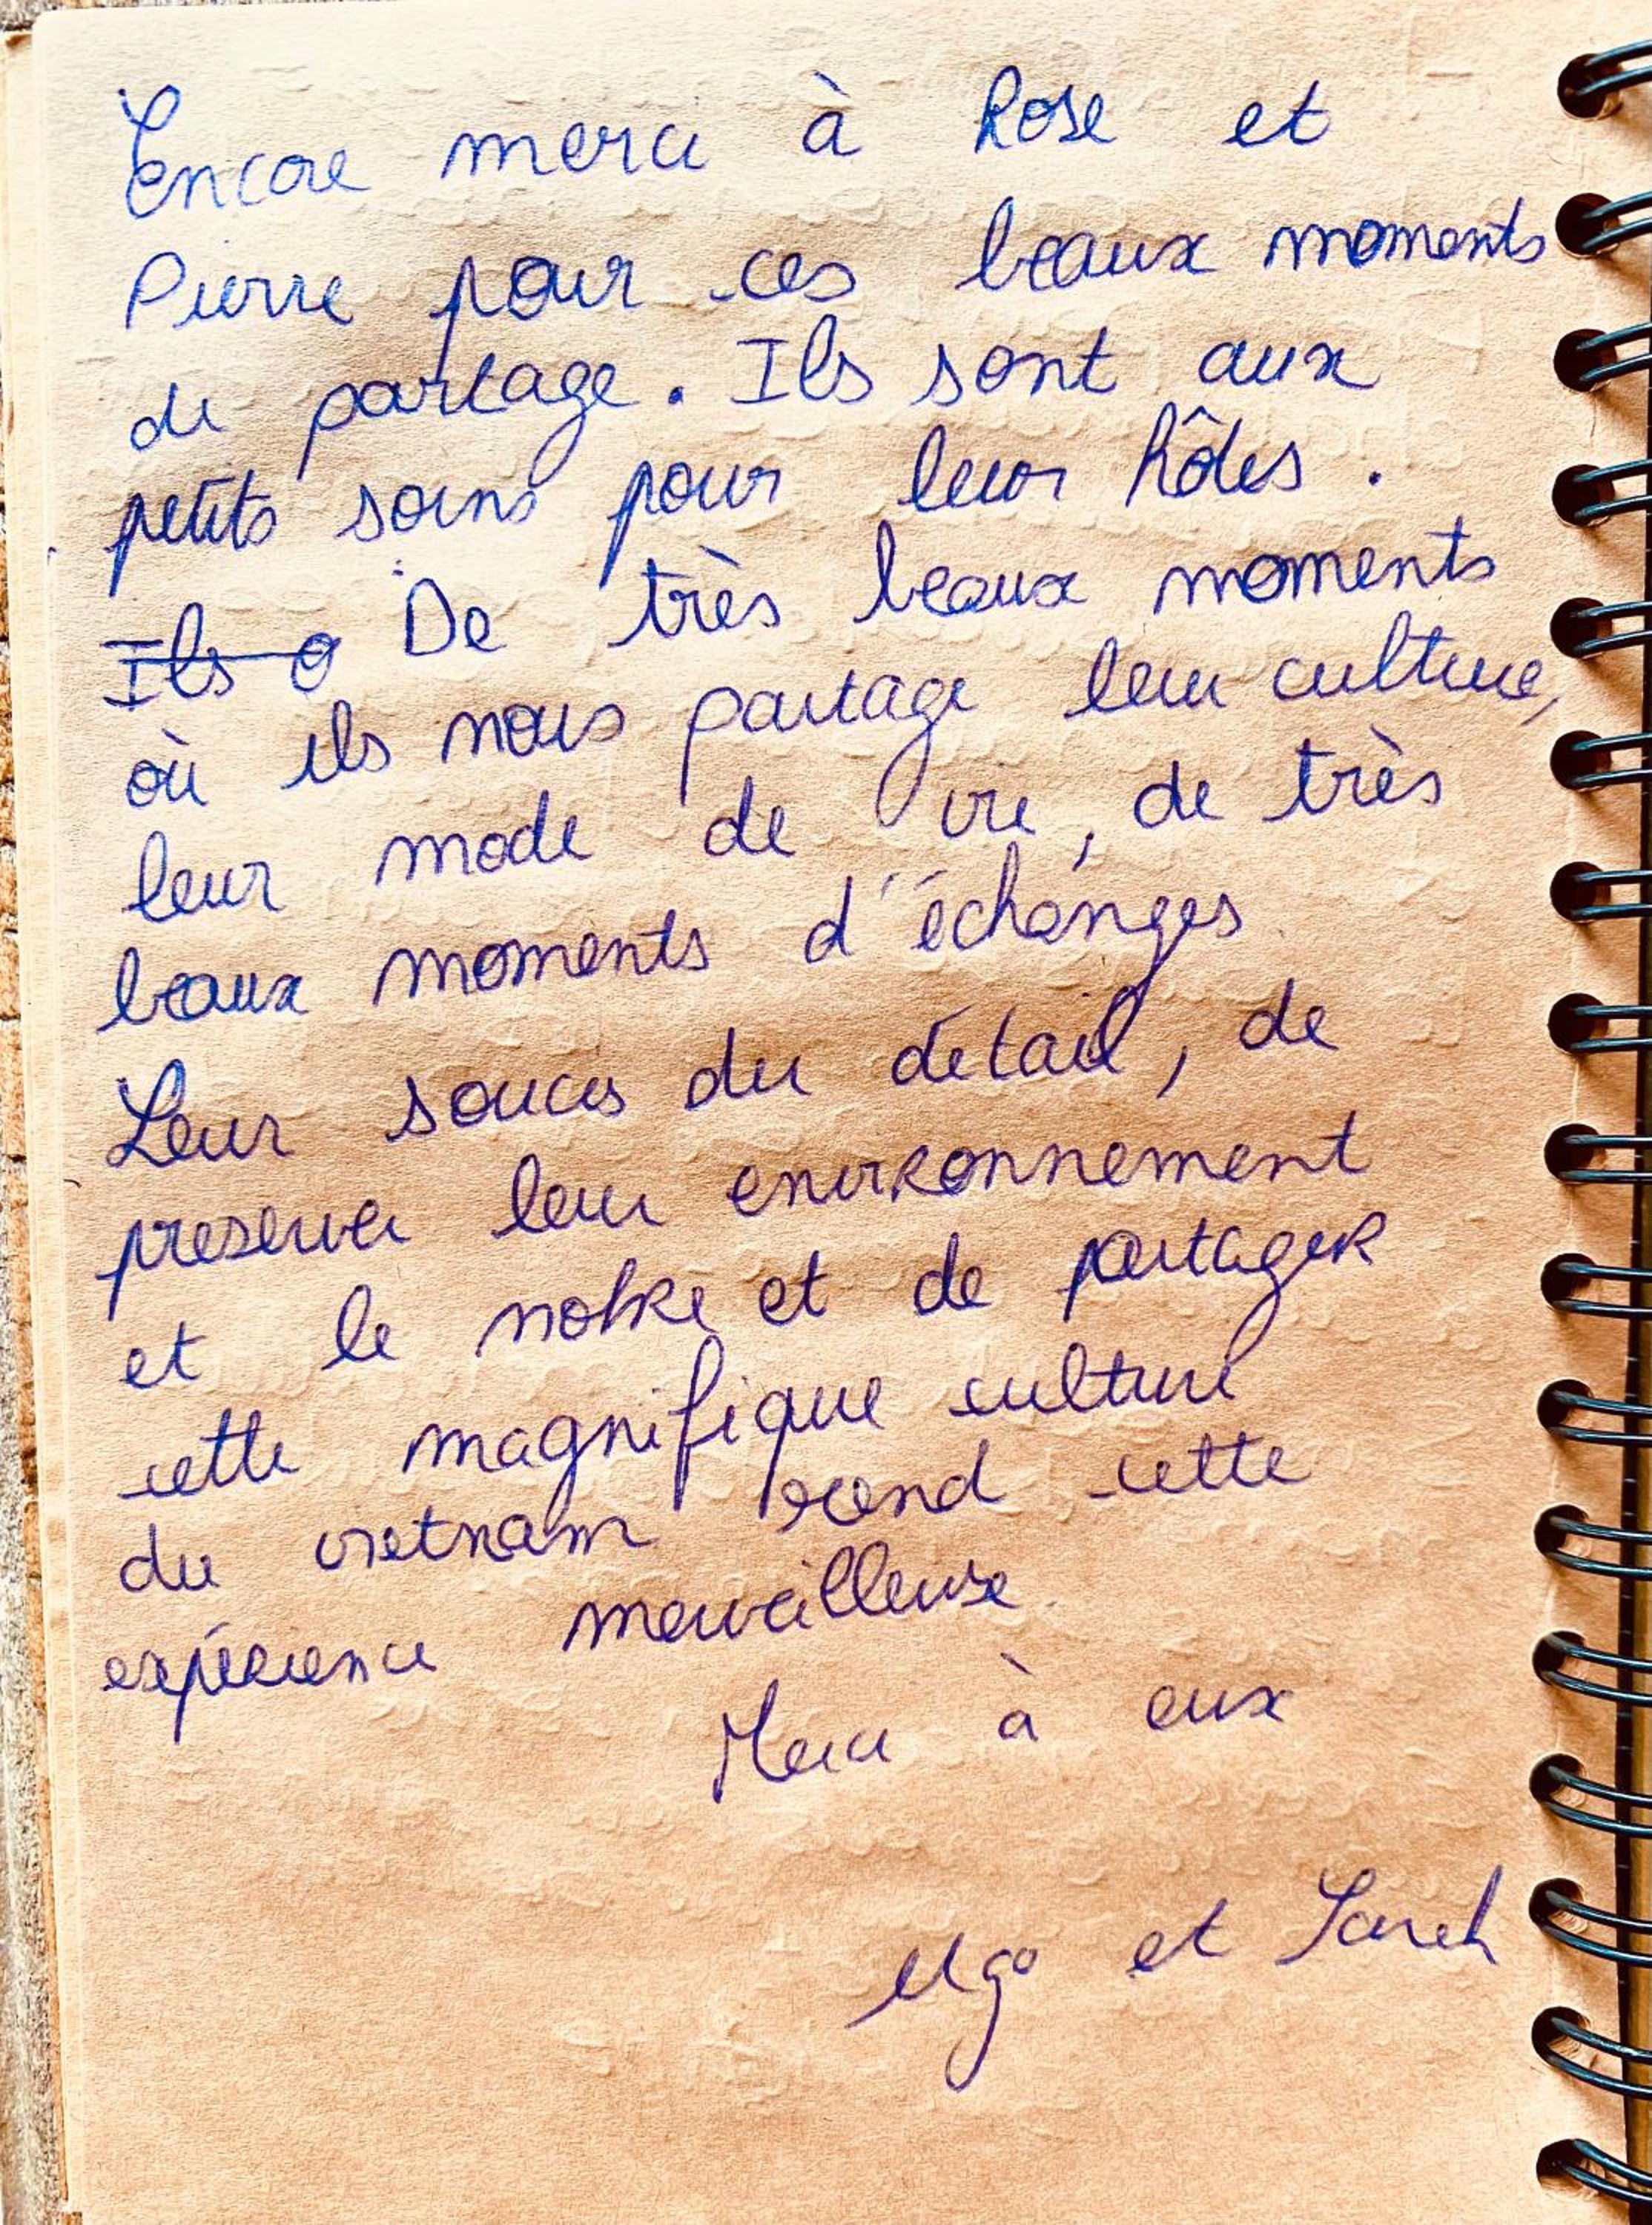 Encore merci à Rose et
Pierre pour ces beaux moments
de partage. Ils sont aux
petits soins pour leur hôtes.
Ils o De très beaux moments
où ils nous partage leur culture,
leur mode de vie, de très
beaux moments d'échanges
Leur soucis du détail, de
preserver leur environnement
et le notre et de partager
cette magnifique culture
du vietnam rend cette
expérience merveilleuse.
Merci à eux
Ugo et Sarah